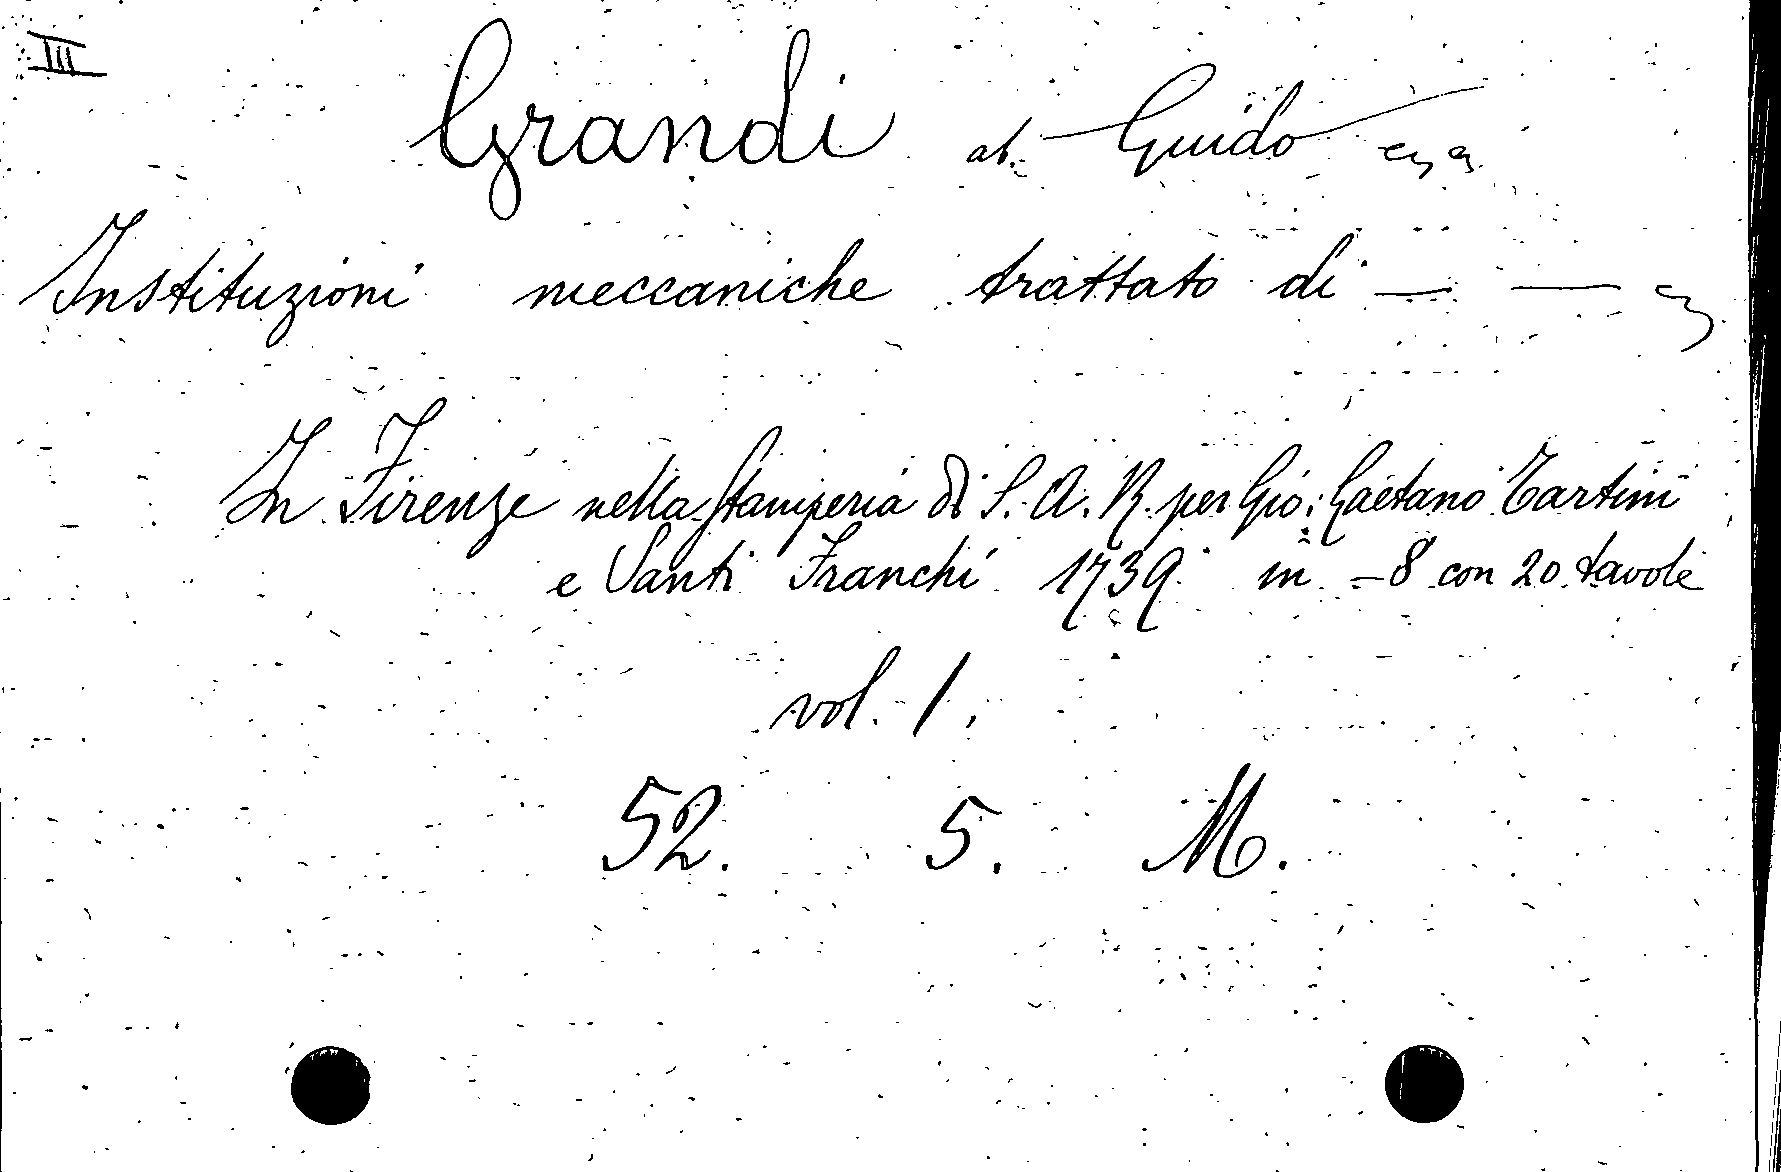 III
Grandi ab. Guido
Instituzioni meccaniche trattato di — —
In Firenze nella Stamperia di S. A. R. per Gio: Gaetano Tartini
e Santi Franchi 1739 in -8 con 20 tavole
vol. 1.
52. 5. M.